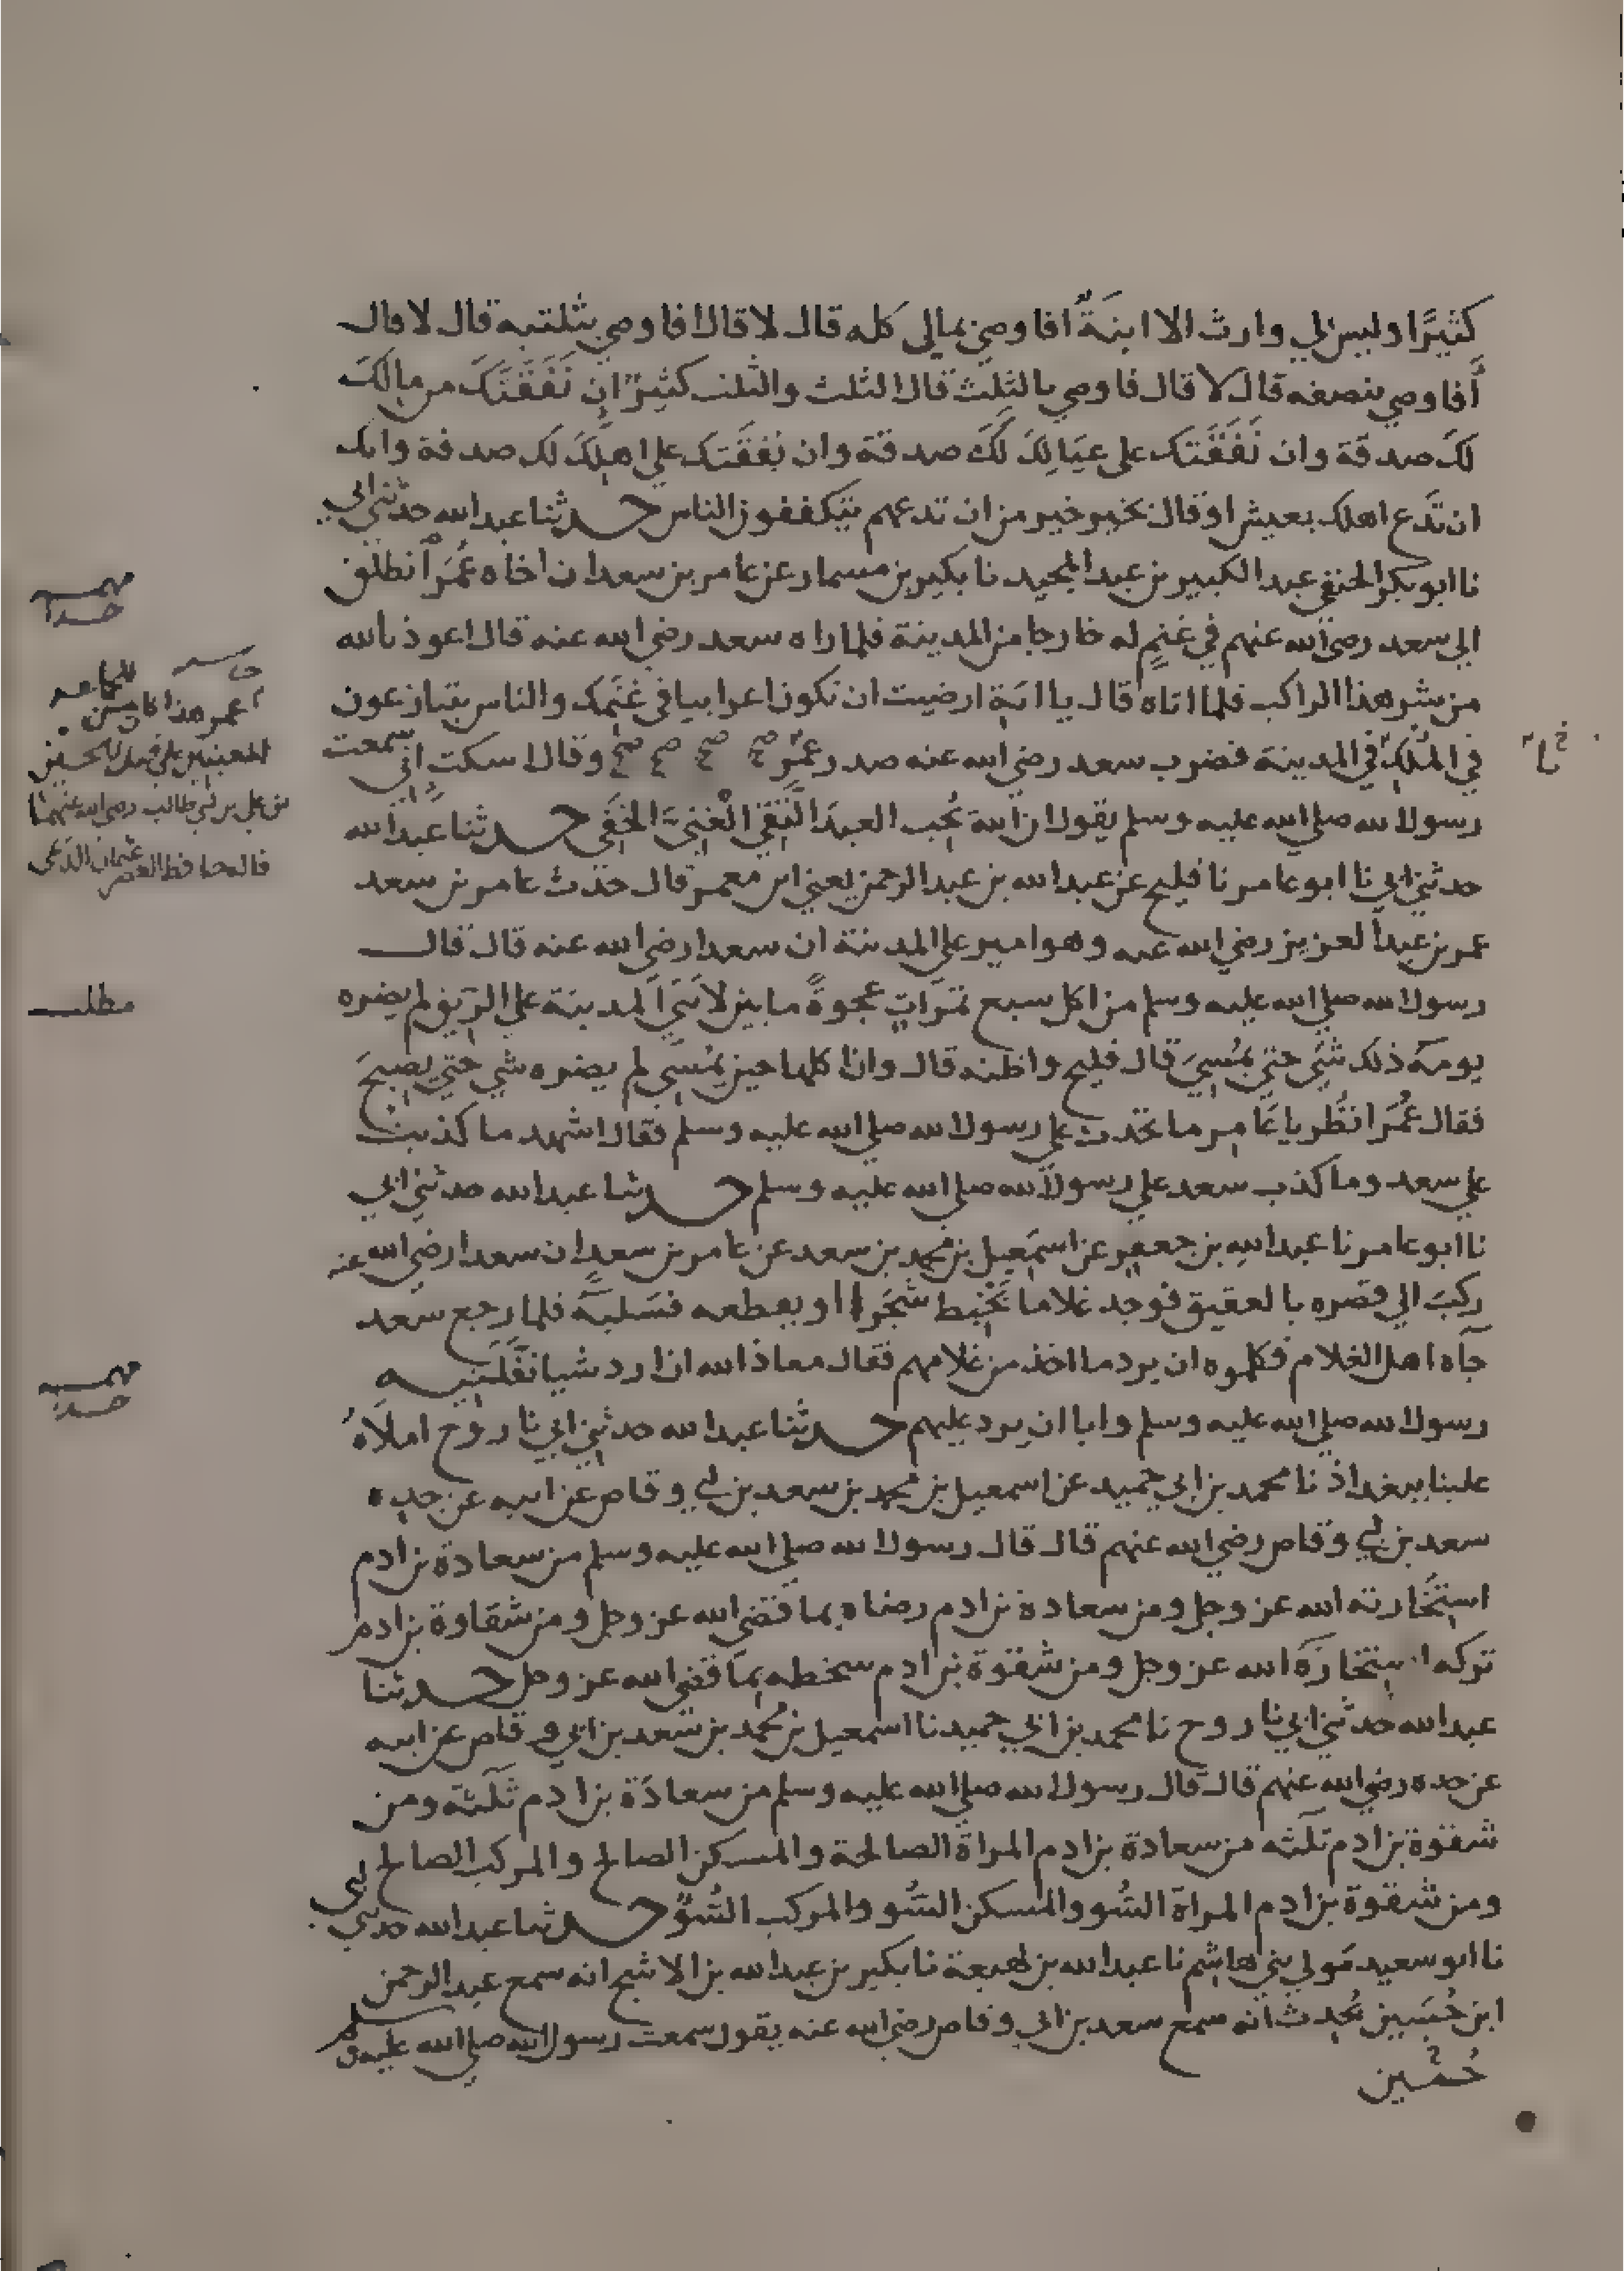 كثيرًا وليس لي وارث الا ابنةٌ افاوصي بمالي كله قال لا قال افاوصي بثلثيه قال لا قال
أفاوصي بنصفه قال لا قال فاوصي بالثلث قال الثلث والثلث كثيرٌ ان نَفَقَتَكَ من مالكَ
لكَ صدقة وان نَفَقَتَك على عيَالِكَ لكَ صدقة وان نفقَتَك على اهلِكَ لك صدقة وانك
ان تَدَع اهلك بعيش او قال بخير خير من ان تدعهم يتكففون الناس حدثنا عبد الله حدثني ابي
نا ابو بكر الحنفي عبد الكبير بن عبد المجيد نا بكير بن مسمار عن عامر بن سعد ان اخاه عُمَرَ انطلق
الي سعد رضي الله عنهم في غنمٍ له خارجا من المدينة فلما راه سعد رضي الله عنه قال اعوذ بالله
من شر هذا الراكب فلما اتاه قال يا ابَةِ ارضيت ان تكون اعرابيا في غنَمِك والناس يتنازعون
في المُلكِ في المدينة فضرب سعد رضي الله عنه صدر عمَرَ صح صح صح صح وقال اسكت اني سمعت
رسول الله صلى الله عليه وسلم يقول ان الله يُحب العبدَ التَّقيَّ الْغنيَّ الخَفَي حدثنا عبد الله
حدثني ابي نا ابو عامر نا فليح عن عبد الله بن عبد الرحمن يعني ابن معمر قال حدث عامر بن سعد
عمر بن عبد العزيز رضي الله عنه وهو امير على المدينة ان سعدا رضي الله عنه قال قال
رسول الله صلى الله عليه وسلم من اكل سبع تمَراتٍ عجوةً ما بين لابَتَيِ المدينة على الرّيق لم يضره
يومهَ ذلك شيٌ حتى يُمْسِيَ قال فليح واظنه قال وان اكلها حين يُمسي لم يضره شي حتى يصبحَ
فقال عُمَرُ انظُر يا عَامِر ما تحدث على رسول الله صلى الله عليه وسلم فقال اشهد ما كذبت
على سعد وما كذب سعد على رسول الله صلى الله عليه وسلم حدثنا عبد الله حدثني ابي
نا ابو عامر نا عبد الله بن جعفر عن اسمَعيل بن محمد بن سعد عن عامر بن سعد ان سعدا رضي الله عنه
ركبَ الي قصره بالعقيق فوجد غلاما يَخْبِط شَجَرا او يقطعه فسَلبَهُ فلما رجع سعد
جاه اهل الغلام فكلموه ان يرد ما اخذ من غلامهم فقال معاذ الله ان ارد شيا نَفَّلَنيه
رسول الله صلى الله عليه وسلم وابا ان يرد عليهم حدثنا عبد الله حدثني ابي نا روح املاهُ
علينا ببغداذ نا محمد بن ابي حميد عن اسمعيل بن محمد بن سعد بن ابي وقاص عن ابيه عن جده
سعد بن ابي وقاص رضي الله عنهم قال قال رسول الله صلى الله عليه وسلم من سعادة بن ادم
استخَارته الله عز وجل ومن سعادة بن ادم رضاه بما قضى الله عز وجل ومن شقاوة بن ادم
تركه استخَارَةَ الله عز وجل ومن شقوة بن ادم سخطه بما قضى الله عز وجل حدثنا
عبد الله حدثني ابي نا روح نا محمد بن ابي حميد نا اسمعيل بن محمد بن سعد بن ابي وقاص عن ابيه
عن جده رضي الله عنهم قال قال رسول الله صلى الله عليه وسلم من سعادَة بن ادم ثَلَثَة ومن
شقوة بن ادم ثلَثَه من سعادة بن ادم المراة الصالحة والمسكن الصالح والمركب الصالح
ومن شقوة بن ادم المراة السُّو والمسكن السُّو والمركب السُّو حدثنا عبد الله حدثني ابي
نا ابو سعيد مَولي بني هاشم نا عبد الله بن لهيعة نا بكير بن عبد الله بن الاشج انه سمع عبد الرحمن
ابن حُسَين يُحدث انه سمع سعد بن ابي وقاص رضي الله عنه يقول سمعت رسول الله صلى الله عليه وسلم
حُسَين
مهمـ
عمر هذا كان من
المعينين على قتل الحسين
بن علي بن ابي طالب رضي الله عنهما
قاله حافظ العصر عثمان
مطلب
مهمـ